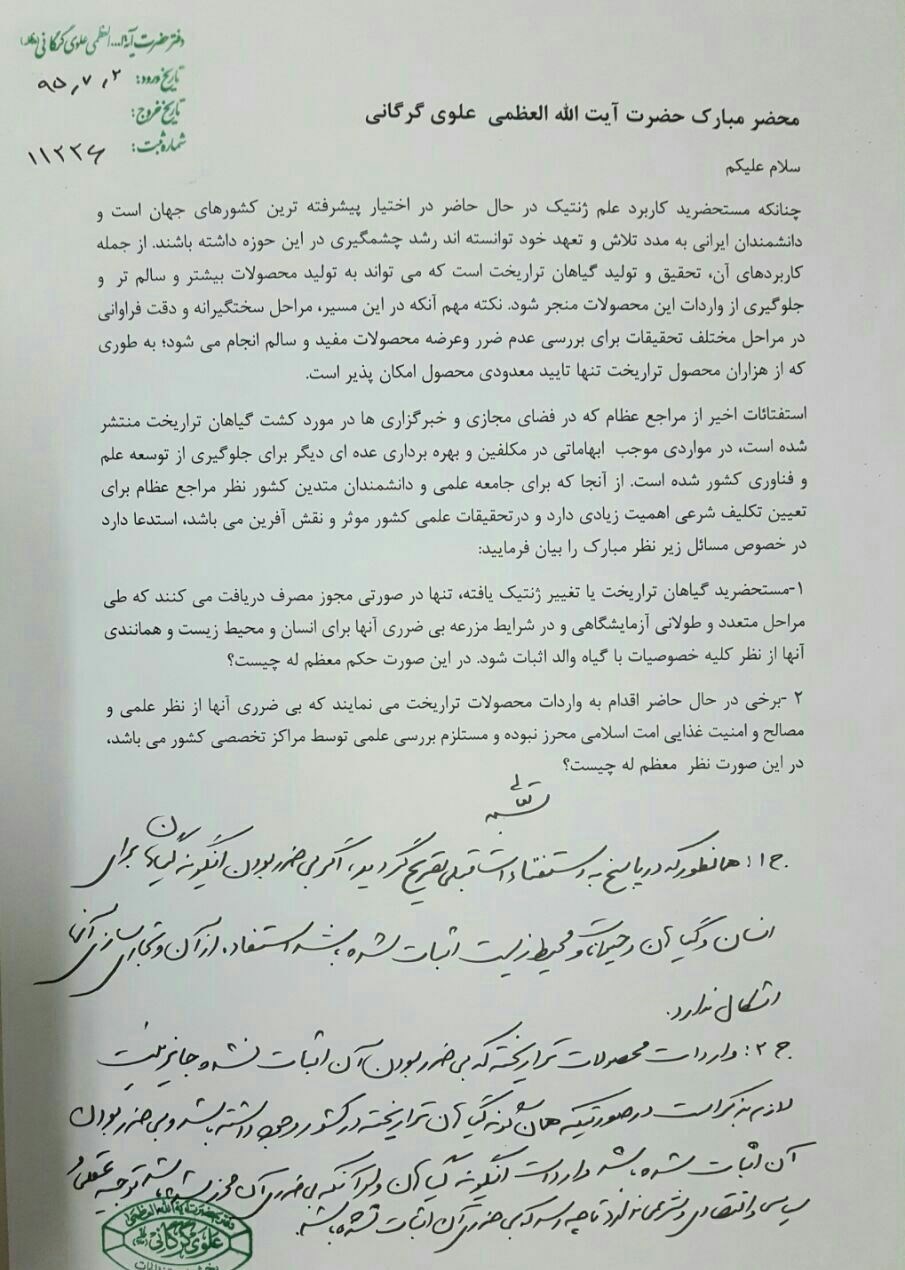 دفتر حضرت آیة ا... العظمی علوی گرگانی
تاریخ ورود: ۹۵٫۷٫۲
تاریخ خروج:
شماره ثبت: ۱۱۲۲۶
محضر مبارک حضرت آیت الله العظمی علوی گرگانی
سلام علیکم
چنانکه مستحضرید کاربرد علم ژنتیک در حال حاضر در اختیار پیشرفته ترین کشورهای جهان است و
دانشمندان ایرانی به مدد تلاش و تعهد خود توانسته اند رشد چشمگیری در این حوزه داشته باشند. از جمله
کاربردهای آن، تحقیق و تولید گیاهان تراریخت است که می تواند به تولید محصولات بیشتر و سالم تر و
جلوگیری از واردات این محصولات منجر شود. نکته مهم آنکه در این مسیر، مراحل سختگیرانه و دقت فراوانی
در مراحل مختلف تحقیقات برای بررسی عدم ضرر وعرضه محصولات مفید و سالم انجام می شود؛ به طوری
که از هزاران محصول تراریخت تنها تایید معدودی محصول امکان پذیر است.
استفتائات اخیر از مراجع عظام که در فضای مجازی و خبرگزاری ها در مورد کشت گیاهان تراریخت منتشر
شده است، در مواردی موجب ابهاماتی در مکلفین و بهره برداری عده ای دیگر برای جلوگیری از توسعه علم
و فناوری کشور شده است. از آنجا که برای جامعه علمی و دانشمندان متدین کشور نظر مراجع عظام برای
تعیین تکلیف شرعی اهمیت زیادی دارد و درتحقیقات علمی کشور موثر و نقش آفرین می باشد، استدعا دارد
در خصوص مسائل زیر نظر مبارک را بیان فرمایید:
۱-مستحضرید گیاهان تراریخت یا تغییر ژنتیک یافته، تنها در صورتی مجوز مصرف دریافت می کنند که طی
مراحل متعدد و طولانی آزمایشگاهی و در شرایط مزرعه بی ضرری آنها برای انسان و محیط زیست و همانندی
آنها از نظر کلیه خصوصیات با گیاه والد اثبات شود. در این صورت حکم معظم له چیست؟
۲ -برخی در حال حاضر اقدام به واردات محصولات تراریخت می نمایند که بی ضرری آنها از نظر علمی و
مصالح و امنیت غذایی امت اسلامی محرز نبوده و مستلزم بررسی علمی توسط مراکز تخصصی کشور می باشد،
در این صورت نظر معظم له چیست؟
بسمه تعالی
ج۱: همانطور که در پاسخ به استفتاءات قبلی تصریح گردید، اگر بی ضرر بودن اینگونه گیاهان برای
انسان و گیاهان و حیوانات و محیط زیست اثبات شده باشد استفاده از آن و تجاری سازی آنها
اشکال ندارد.
ج۲: واردات محصولات تراریخته که بی ضرر بودن آن اثبات نشده جایز نیست
لازم بذکر است در صورتیکه همان گونه گیاهان تراریخته در کشور وجود داشته باشد و بی ضرر بودن
آن اثبات شده باشد واردات اینگونه گیاهان ولو آنکه بی ضرری آن محرز باشد توجیه عقلی و
سیاسی و اقتصادی و شرعی ندارد تا چه رسد که بی ضرری آن اثبات نشده باشد.
دفتر حضرت آیة الله العظمی
علوی گرگانی